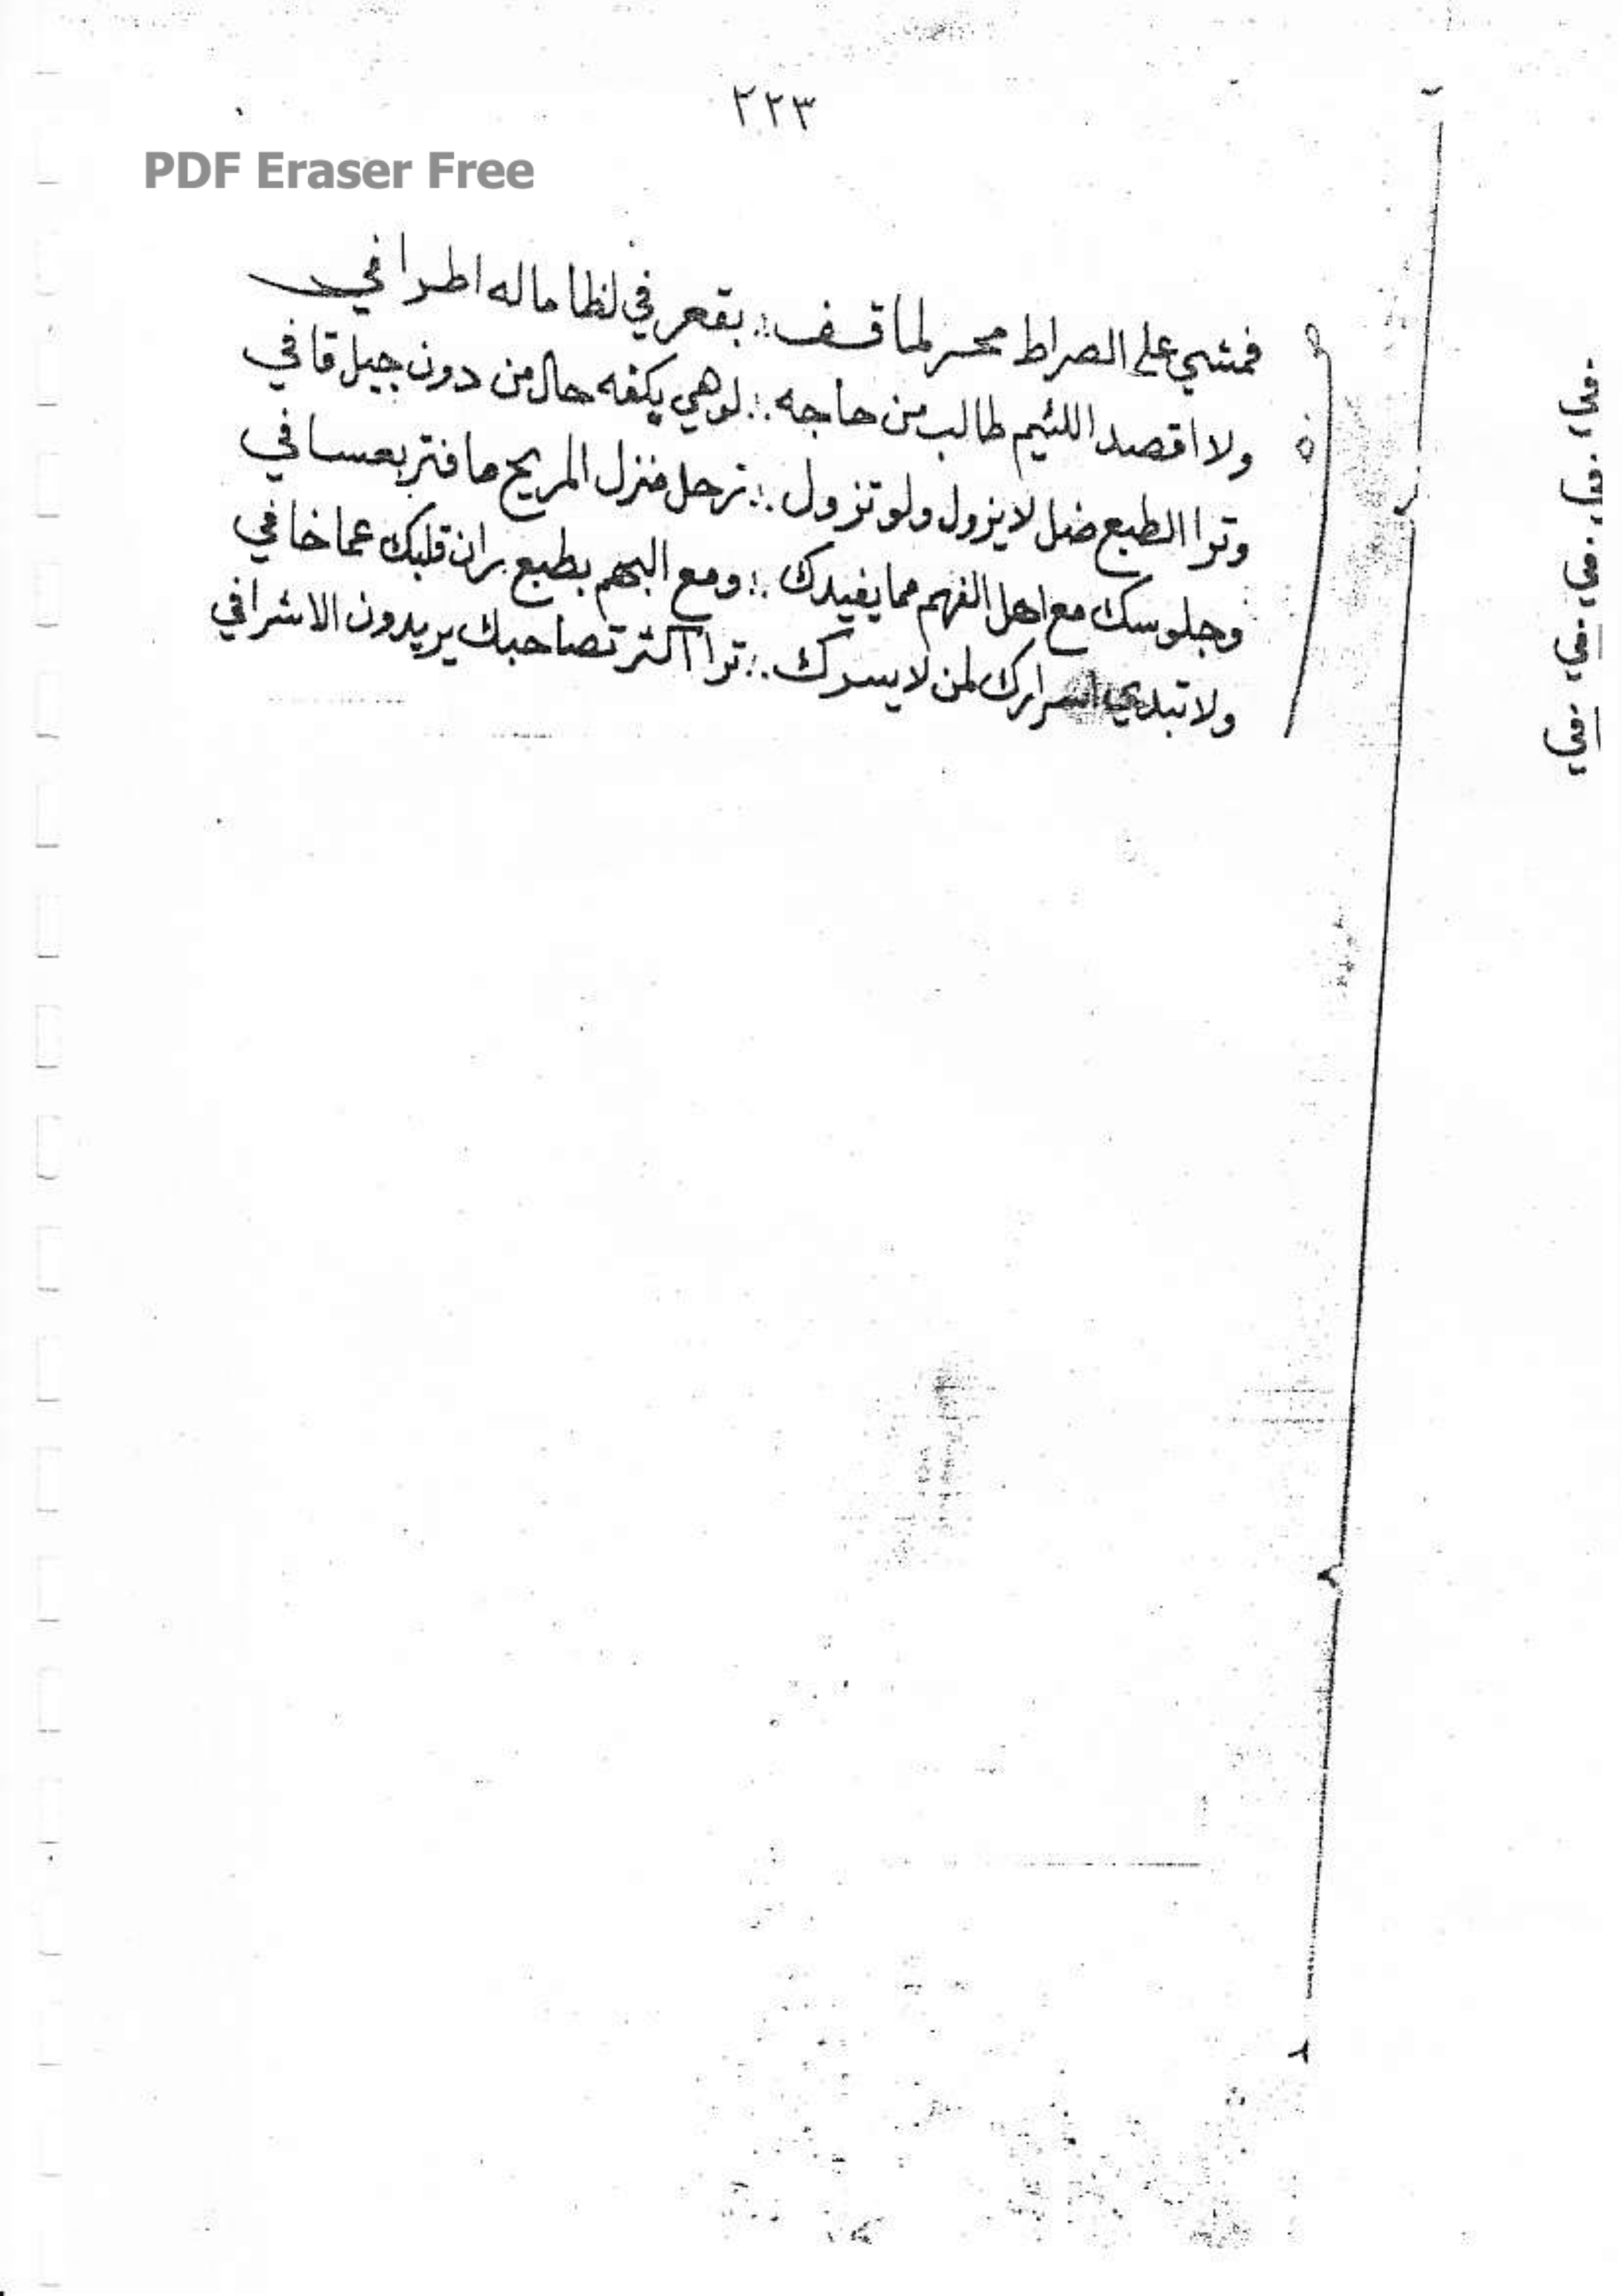 ٢٢٣
PDF Eraser Free
فمشي على الصراط محسر لما قسف ∴ بقعر في لظا ماله اطرافي
ولا اقصد اللئيم طالب من حاجه ∴ لوهي يكفه حال من دون جبل قافي
وترا الطبع ضل لا يزول ولو تزول ∴ ترحل منزل المريخ ما فتر بعسافي
وجلوسك مع اهل الفهم مما يفيدك ∴ ومع البهم بطبع بران قلبك عما خافي
ولا تبدي اسرارك لمن لا يسرك ∴ ترا اكثر تصاحبك يريدون الاشرافي
٥
في
في
في
افي